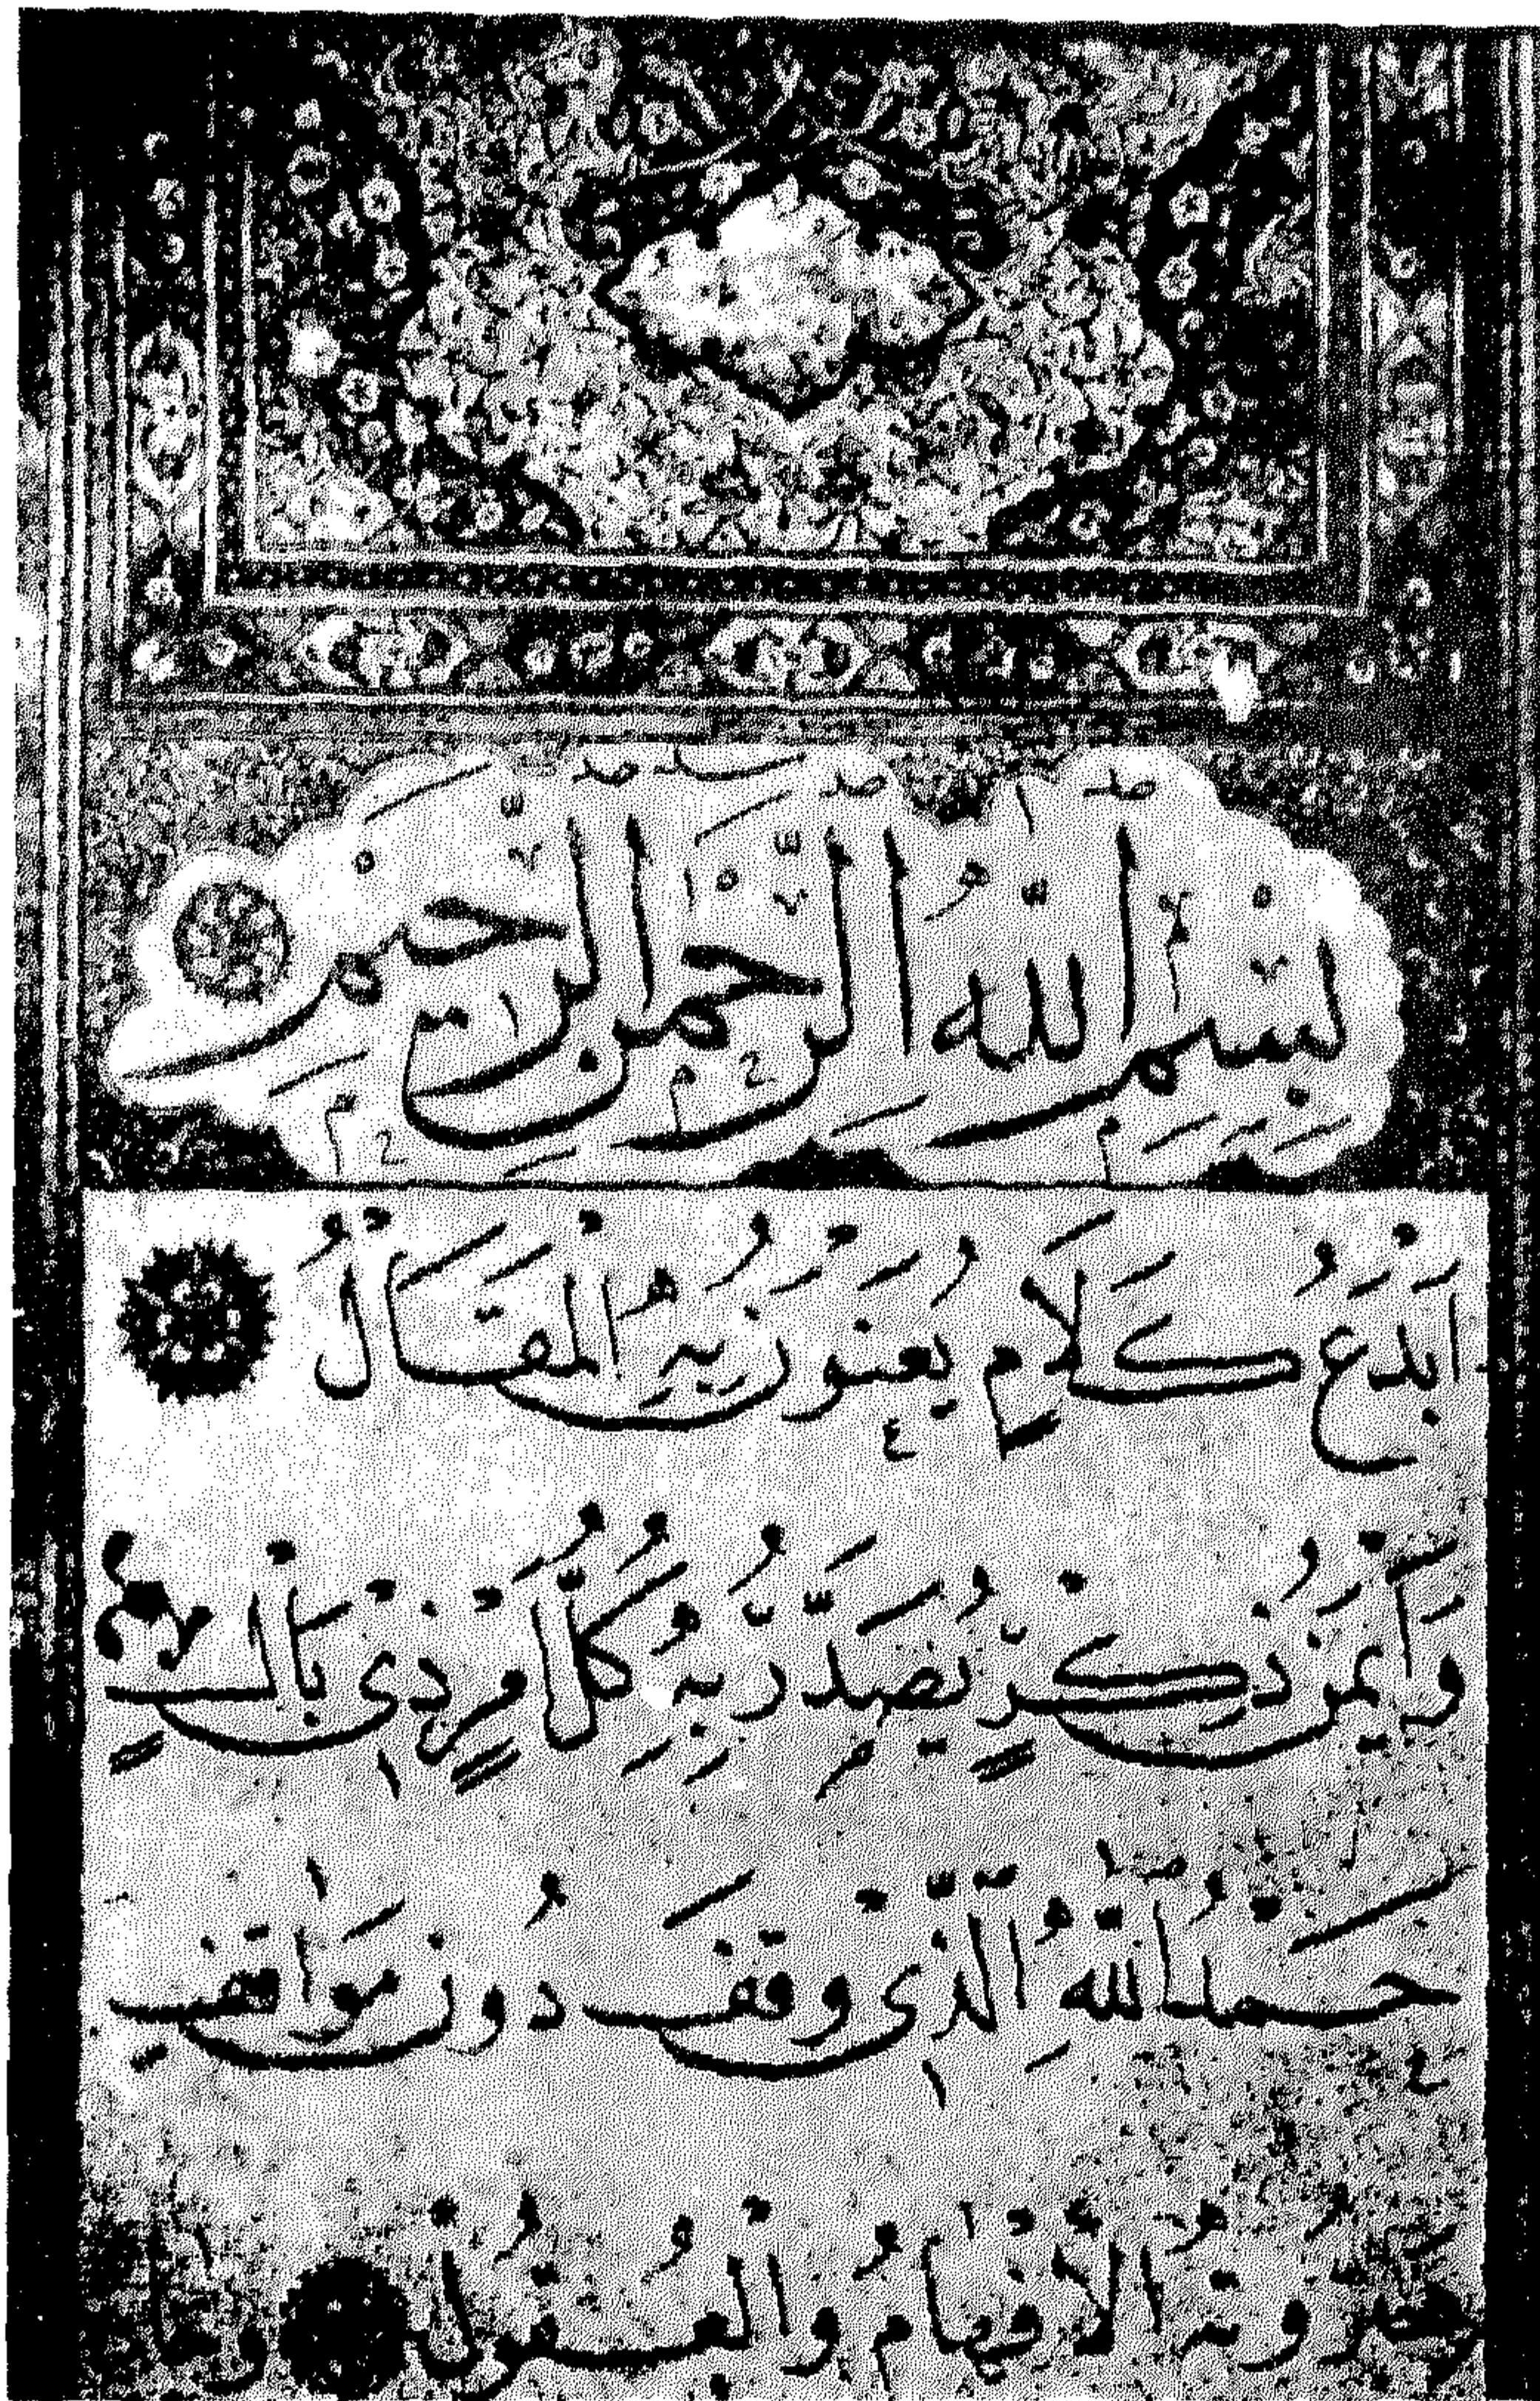 بِسْمِ اللهِ الرَّحْمٰنِ الرَّحِيمِ
اَبْلَغُ كَلَامٍ يُعَنْوَنُ بِهِ الْمَقَالُ
وَاَيْمَنُ ذِكْرٍ يُصَدَّرُ بِهِ كُلُّ اَمْرٍ ذِي بَالٍ
حَمْدُ اللهِ الَّذِي وَقَفَ دُونَ مَوَاقِفِ
الْاَفْهَامُ وَالْعُقُولُ